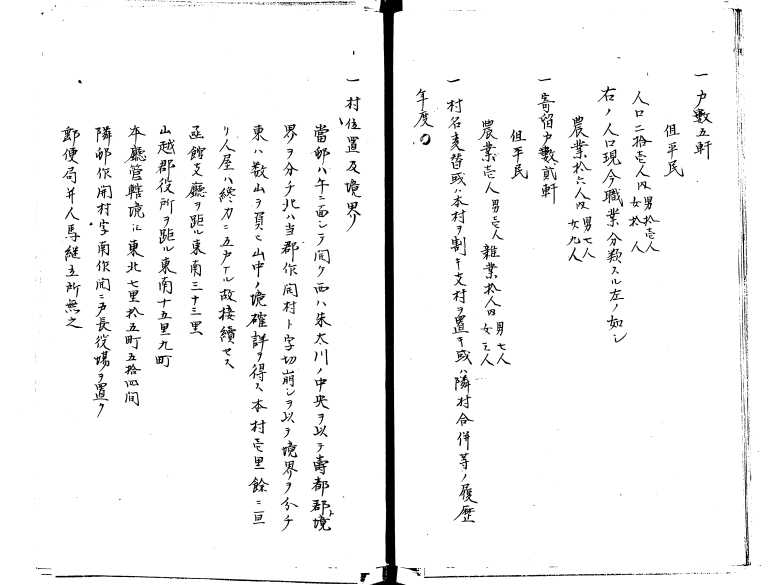 一戸数五軒
但平民
人口二拾壱人内 男拾壱人 女拾人
右ノ人口現今職業分類スル左ノ如シ
農業拾六人内 男七人 女九人
一寄留戸数貳軒
但平民
農業壱人 男壱人 雑業拾人内 男七人 女三人
一村名変替或ハ本村ヲ割キ支村ヲ置キ或ハ隣村合併等ノ履歴
年度〇
一村位置及境界
當邨ハ午ニ面シテ開ク西ハ朱太川ノ中央ヲ以テ壽都郡ト境
界ヲ分チ北ハ当郡作開村ト字切崩シヲ以テ境界ヲ分チ
東ハ数山ヲ負ヒ山中ノ境確詳ヲ得ス本村壱里餘ニ亘
リ人屋ハ終カニ五戸ケル故接續セス
函館支廳ヲ距ル東南三十三里
山越郡役所ヲ距ル東南十五里九町
本廳管轄境ニ東北七里拾五町五拾四間
隣邨作開村字南作開ニ戸長役場ヲ置ク
郵便局并人馬継立所無之